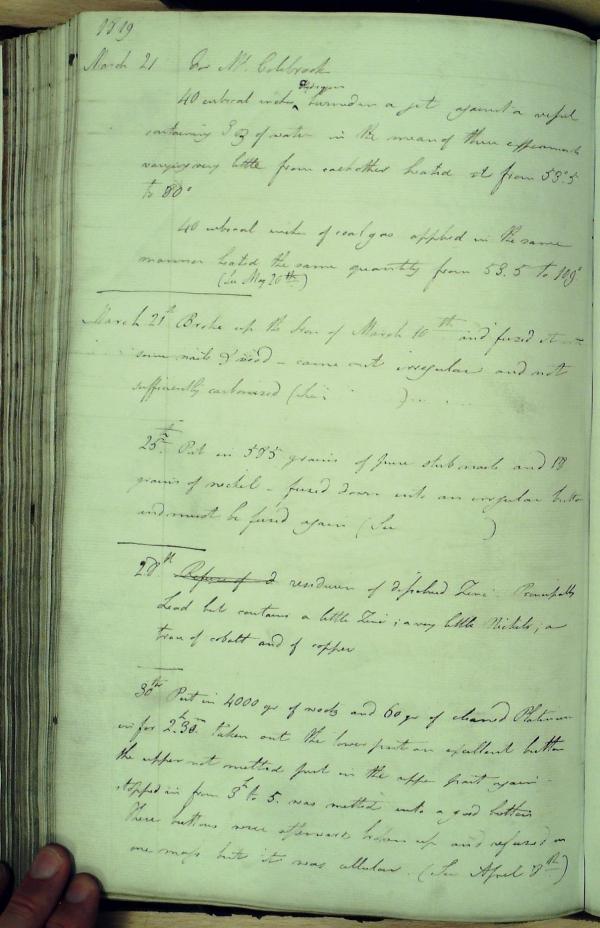 1819
March 21 For Mr. Colebrook
Hydrogen
40 cubical inches ^ burned in a jet against a vessel
containing 3 oz of water in the mean of three experiments
varying very little from each other heated it from 53°.5
to 80°
40 cubical inches of coal gas applied in the same
manner heated the same quantity from 53.5 to 109°
(See May 20th)
March 21st Broke up the Iron of March 10th and fused it with
some nails & wood – came out irregular and not
sufficiently carbonized (See )
25th. Put in 585 grains of pure stub nails and 18
grains of nickel – fused down into an irregular button
and must be fused again (See )
28th Refuse of d residuum of dissolved Zinc. Principally
Lead but contains a little Zinc; a very little Nickel; a
trace of cobalt and of copper
30th Put in 4000 gr of and 60 gr of cleaned Platinum
in for 2h.30m. taken out the lower part an excellent button
the upper not melted put in the upper part again –
stopped in from 3h to 5. was melted into a good button
These buttons were afterwards broken up and refused in
one mass but it was cellular. (See April 8th)